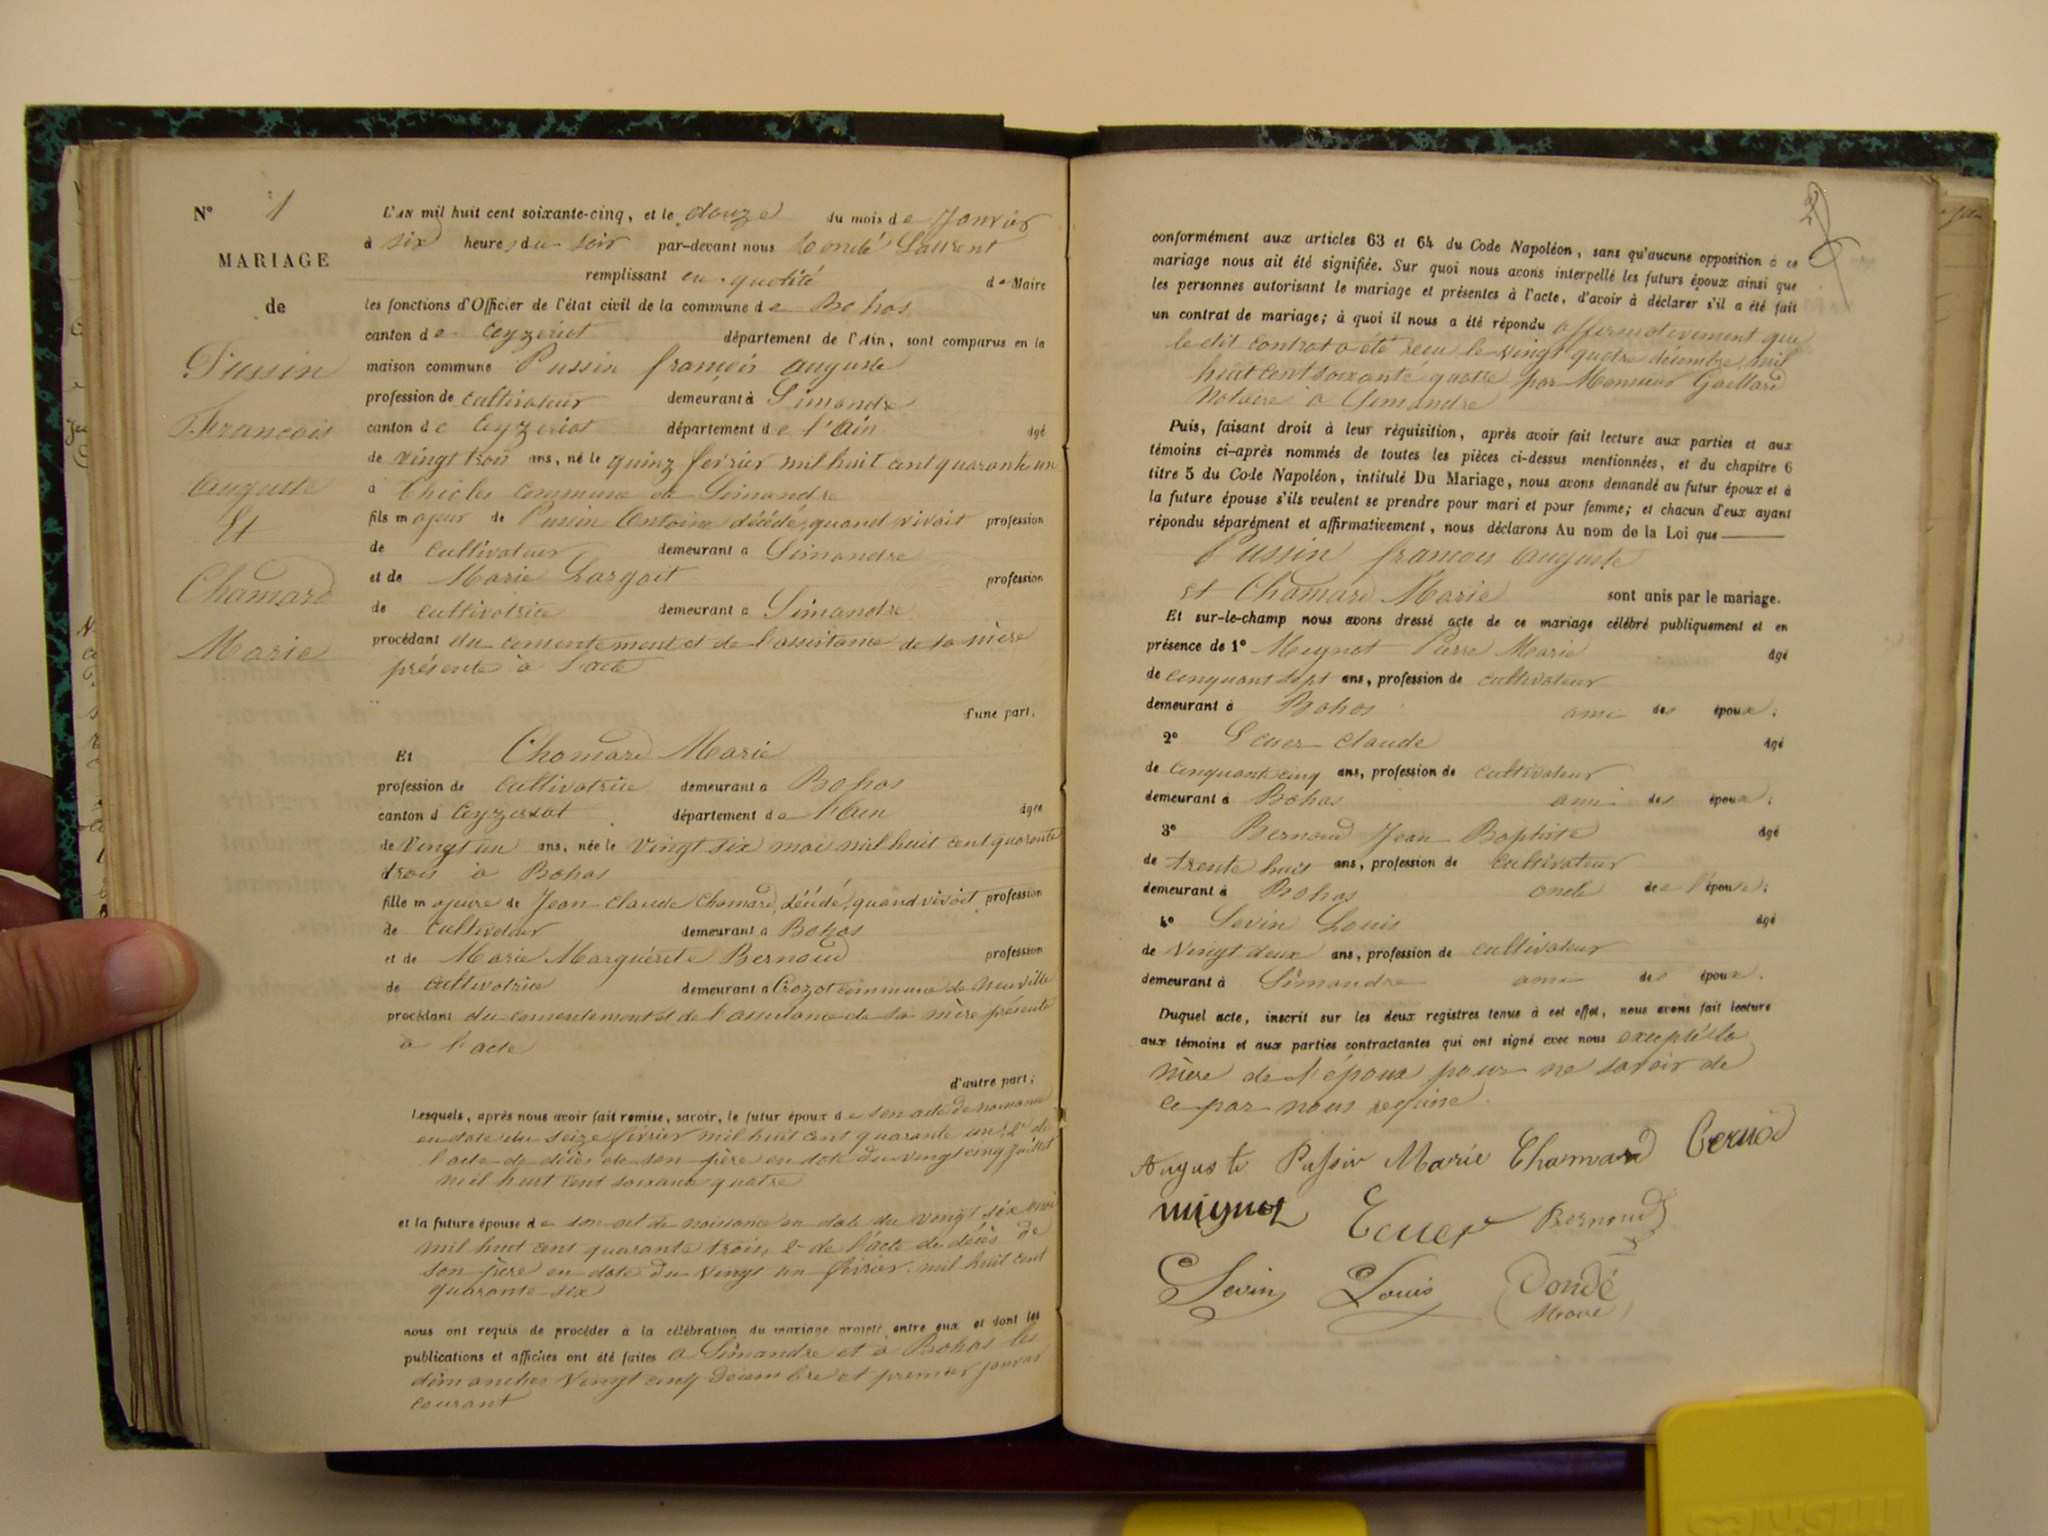 N° 1
MARIAGE
de
Pussin
François
Auguste
Et
Chamard
Marie
L'AN mil huit cent soixante-cinq, et le douze du mois de Janvier
à six heures du soir par-devant nous Condé Laurent
remplissant en qualité de Maire
les fonctions d'Officier de l'état civil de la commune de Bohas
canton de Ceyzeriat département de l'Ain, sont comparus en la
maison commune Pussin françois auguste
profession de cultivateur demeurant à Simandre
canton de Ceyzeriat département de l'Ain âgé
de vingt trois ans, né le quinz fevrier mil huit cent quarante un
à Thioles commune de Simandre
fils majeur de Pussin Antoine décédé, quand vivait profession
de cultivateur demeurant à Simandre
et de Marie Largoit profession
de cultivatrice demeurant à Simandre
procédant du consentement et de l'assistance de sa mère
présente à l'acte
d'une part,
Et Chamard Marie
profession de cultivatrice demeurant à Bohas
canton d Ceyzeriat département de l'Ain âgée
de Vingt un ans, née le Vingt six mai mil huit cent quarante
trois à Bohas
fille majeure de Jean Claude Chamard, décédé, quand vivait profession
de cultivateur demeurant à Bohas
et de Marie Marguérite Bernoud profession
de cultivatrice demeurant à Crozot commune de Neuville
procédant du consentement et de l'assistance de sa mère présente
à l'acte
d'autre part;
Lesquels, après nous avoir fait remise, savoir, le futur époux de son acte de naissance
en date du seize février mil huit cent quarante un, 2° de
l'acte de décès de son père en date du vingt cinq juillet
mil huit cent soixante quatre
et la future épouse de son act de naissance en date du vingt six mai
mil huit cent quarante trois, 2° de l'acte de décès de
son père en date du vingt un février mil huit cent
quarante six
nous ont requis de procéder à la célébration du mariage projeté entre eux et dont les
publications et affiches ont été faites à Simandre et à Bohas les
dimanches vingt cinq décembre et premier janvier
courant
2
conformément aux articles 63 et 64 du Code Napoléon, sans qu'aucune opposition à ce
mariage nous ait été signifiée. Sur quoi nous avons interpellé les futurs époux ainsi que
les personnes autorisant le mariage et présentes à l'acte, d'avoir à déclarer s'il a été fait
un contrat de mariage; à quoi il nous a été répondu affirmativement que
le dit contrat a été reçu le vingt quatre décembre mil
huit cent soixante quatre par Monsieur Gaillard
Notaire à Simandre
Puis, faisant droit à leur réquisition, après avoir fait lecture aux parties et aux
témoins ci-après nommés de toutes les pièces ci-dessus mentionnées, et du chapitre 6
titre 5 du Code Napoléon, intitulé Du Mariage, nous avons demandé au futur époux et à
la future épouse s'ils veulent se prendre pour mari et pour femme; et chacun d'eux ayant
répondu séparément et affirmativement, nous déclarons Au nom de la Loi que
Pussin francois Auguste
et Chamard Marie sont unis par le mariage.
Et sur-le-champ nous avons dressé acte de ce mariage célébré publiquement et en
présence de 1° Meynot Pierre Marie âgé
de cinquant sept ans, profession de cultivateur
demeurant à Bohas ami des époux;
2° Ecuer Claude âgé
de cinquant cinq ans, profession de cultivateur
demeurant à Bohas ami des époux;
3° Bernoud Jean Baptiste âgé
de trente huit ans, profession de cultivateur
demeurant à Bohas oncle de l'épouse;
4° Sevin Louis âgé
de Vingt deux ans, profession de cultivateur
demeurant à Simandre ami des époux.
Duquel acte, inscrit sur les deux registres tenus à cet effet, nous avons fait lecture
aux témoins et aux parties contractantes qui ont signé avec nous excepté la
mère de l'époux pour ne savoir de
ce par nous requise.
Auguste Pussin Marie Chamard Bernod
mignot Ecuer Bernoud
Sevin Louis Condé
Maire